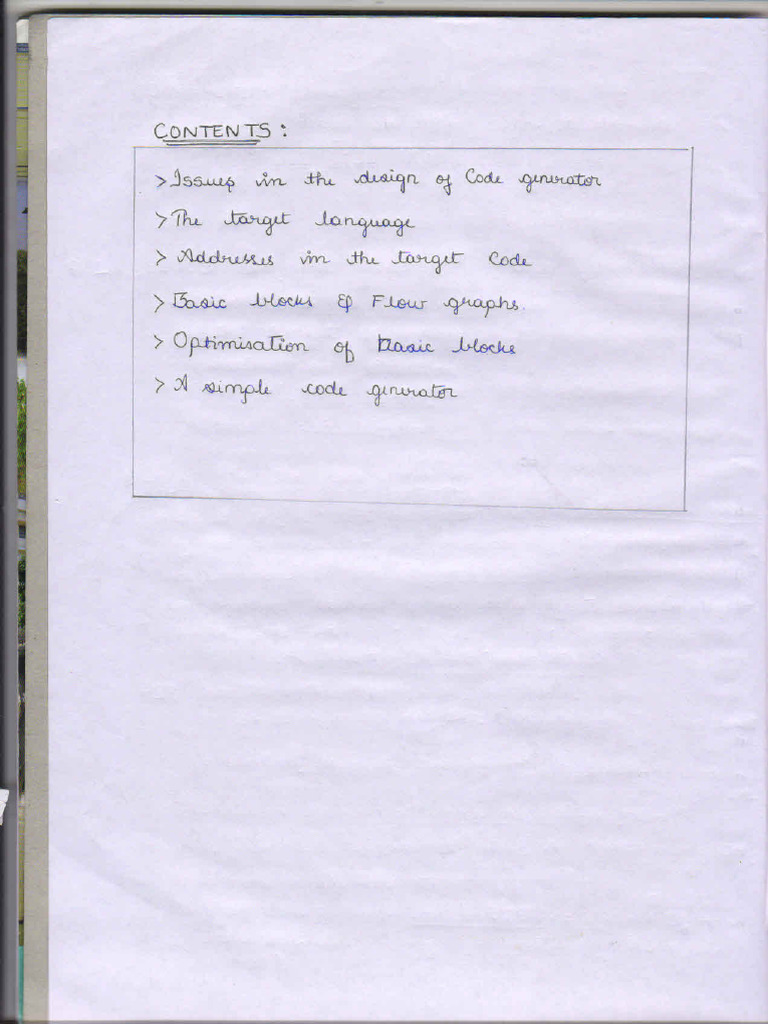 CONTENTS:
> Issues in the design of Code generator
> The target language
> Addresses in the target Code
> Basic blocks & Flow graphs.
> Optimisation of basic blocks
> A simple code generator